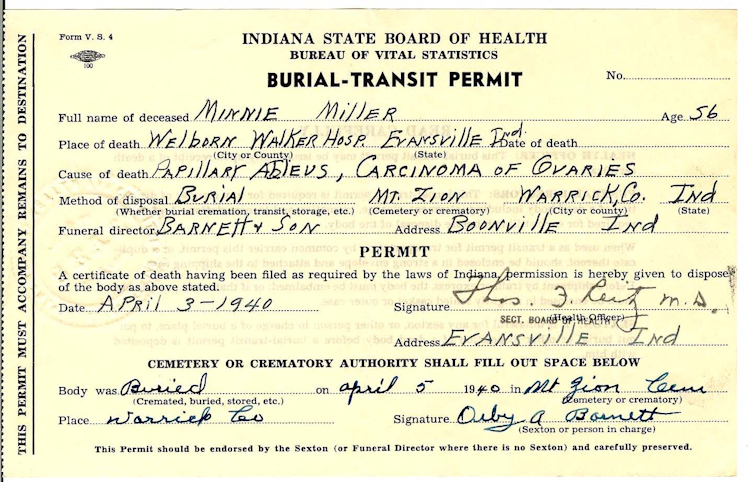 Form V. S. 4
100
INDIANA STATE BOARD OF HEALTH
BUREAU OF VITAL STATISTICS
BURIAL-TRANSIT PERMIT
No.
Full name of deceased MINNIE MILLER Age 56
Place of death WELBORN WALKER HOSP. EVANSVILLE Ind. Date of death
(City or County) (State)
Cause of death PAPILLARY , CARCINOMA OF OVARIES
Method of disposal BURIAL MT. ZION WARRICK, CO. IND
(Whether burial cremation, transit, storage, etc.) (Cemetery or crematory) (City or county) (State)
Funeral director BARNETT & SON Address BOONVILLE IND
PERMIT
A certificate of death having been filed as required by the laws of Indiana, permission is hereby given to dispose
of the body as above stated.
Date APRIL 3-1940 Signature M.D.
SECT. BOARD OF HEALTH
(Health Officer)
Address EVANSVILLE IND
CEMETERY OR CREMATORY AUTHORITY SHALL FILL OUT SPACE BELOW
Body was Buried on april 5 1940 in Mt Zion Cem
(Cremated, buried, stored, etc.) (Cemetery or crematory)
Place Warrick Co Signature A Barnett
(Sexton or person in charge)
This Permit should be endorsed by the Sexton (or Funeral Director where there is no Sexton) and carefully preserved.
THIS PERMIT MUST ACCOMPANY REMAINS TO DESTINATION